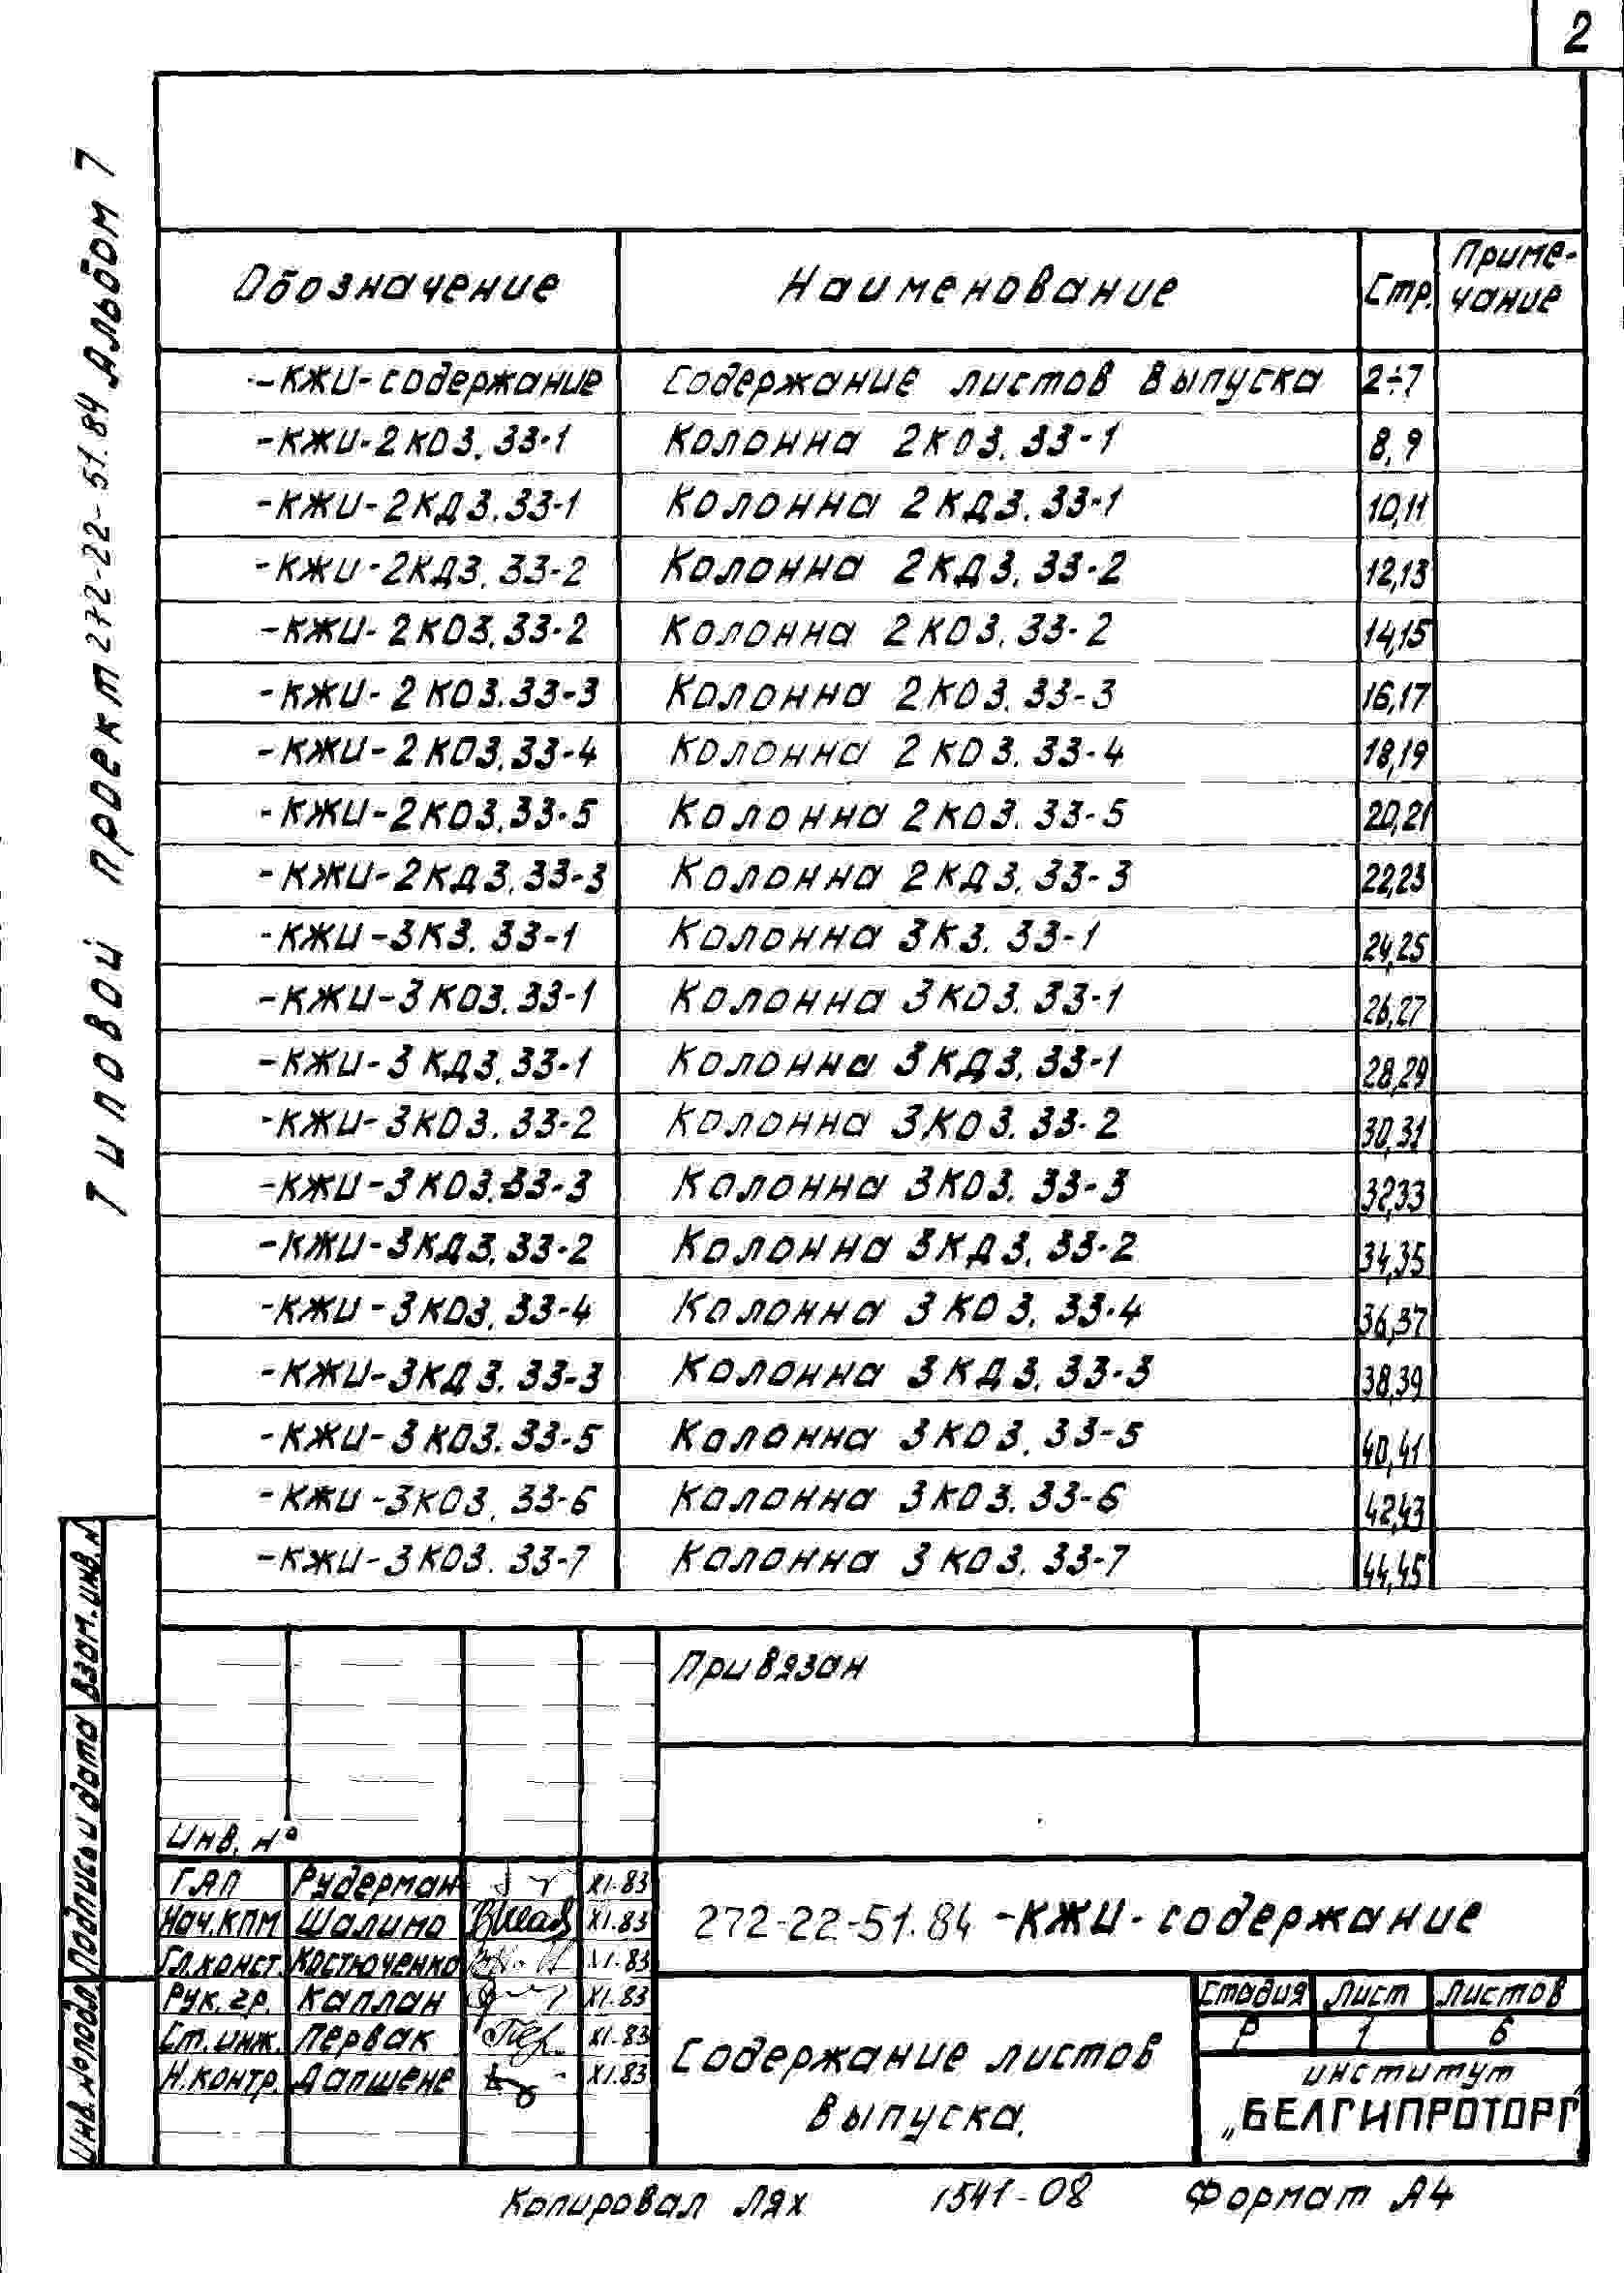 2
Типовой проект 272-22-51.84 Альбом 7
Обозначение Наименование Стр. Приме-
чание
-КЖИ-содержание Содержание листов выпуска 2÷7
-КЖИ-2КО3.33-1 Колонна 2КО3.33-1 8,9
-КЖИ-2КД3.33-1 Колонна 2КД3.33-1 10,11
-КЖИ-2КД3.33-2 Колонна 2КД3.33-2 12,13
-КЖИ-2КО3.33-2 Колонна 2КО3.33-2 14,15
-КЖИ-2КО3.33-3 Колонна 2КО3.33-3 16,17
-КЖИ-2КО3.33-4 Колонна 2КО3.33-4 18,19
-КЖИ-2КО3.33-5 Колонна 2КО3.33-5 20,21
-КЖИ-2КД3.33-3 Колонна 2КД3.33-3 22,23
-КЖИ-3К3.33-1 Колонна 3К3.33-1 24,25
-КЖИ-3КО3.33-1 Колонна 3КО3.33-1 26,27
-КЖИ-3КД3.33-1 Колонна 3КД3.33-1 28,29
-КЖИ-3КО3.33-2 Колонна 3КО3.33-2 30,31
-КЖИ-3КО3.33-3 Колонна 3КО3.33-3 32,33
-КЖИ-3КД3.33-2 Колонна 3КД3.33-2 34,35
-КЖИ-3КО3.33-4 Колонна 3КО3.33-4 36,37
-КЖИ-3КД3.33-3 Колонна 3КД3.33-3 38,39
-КЖИ-3КО3.33-5 Колонна 3КО3.33-5 40,41
-КЖИ-3КО3.33-6 Колонна 3КО3.33-6 42,43
-КЖИ-3КО3.33-7 Колонна 3КО3.33-7 44,45
Взам.инв.N
Подпись и дата
Инв.№подл.
Привязан
Инв.№
ГАП Рудерман XI.83
Нач.КПМ Шалима XI.83
Гл.конст. Костюченко XI.83
Рук.гр. Каплан XI.83
Ст.инж. Первак XI.83
Н.контр. Дапшене XI.83
272-22-51.84-КЖИ-содержание
Содержание листов
выпуска.
Стадия Лист Листов
Р 1 6
институт
„БЕЛГИПРОТОРГ"
Копировал Лях 1541-08 Формат А4